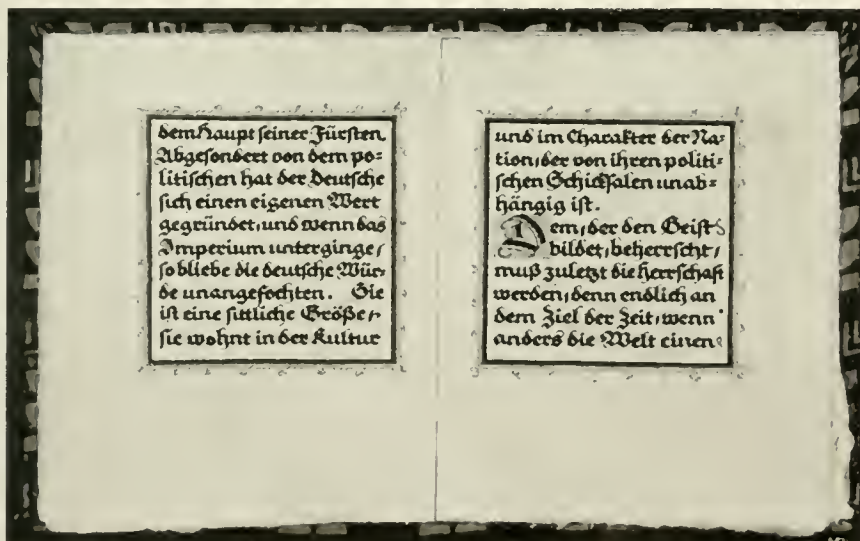 dem Haupt seiner Fürsten
Abgesondert von dem po=
litischen hat der Deutsche
sich einen eigenen Wert
gegründet, und wenn das
Imperium unterginge,
so bliebe die deutsche Wür=
de unangefochten. Sie
ist eine sittliche Größe,
sie wohnt in der Kultur
und im Charakter der Na=
tion, der von ihren politi=
schen Schicksalen unab=
hängig ist.
Dem, der den Geist
bildet, beherrscht,
muß zuletzt die Herrschaft
werden, denn endlich an
dem Ziel der Zeit, wenn
anders die Welt einen